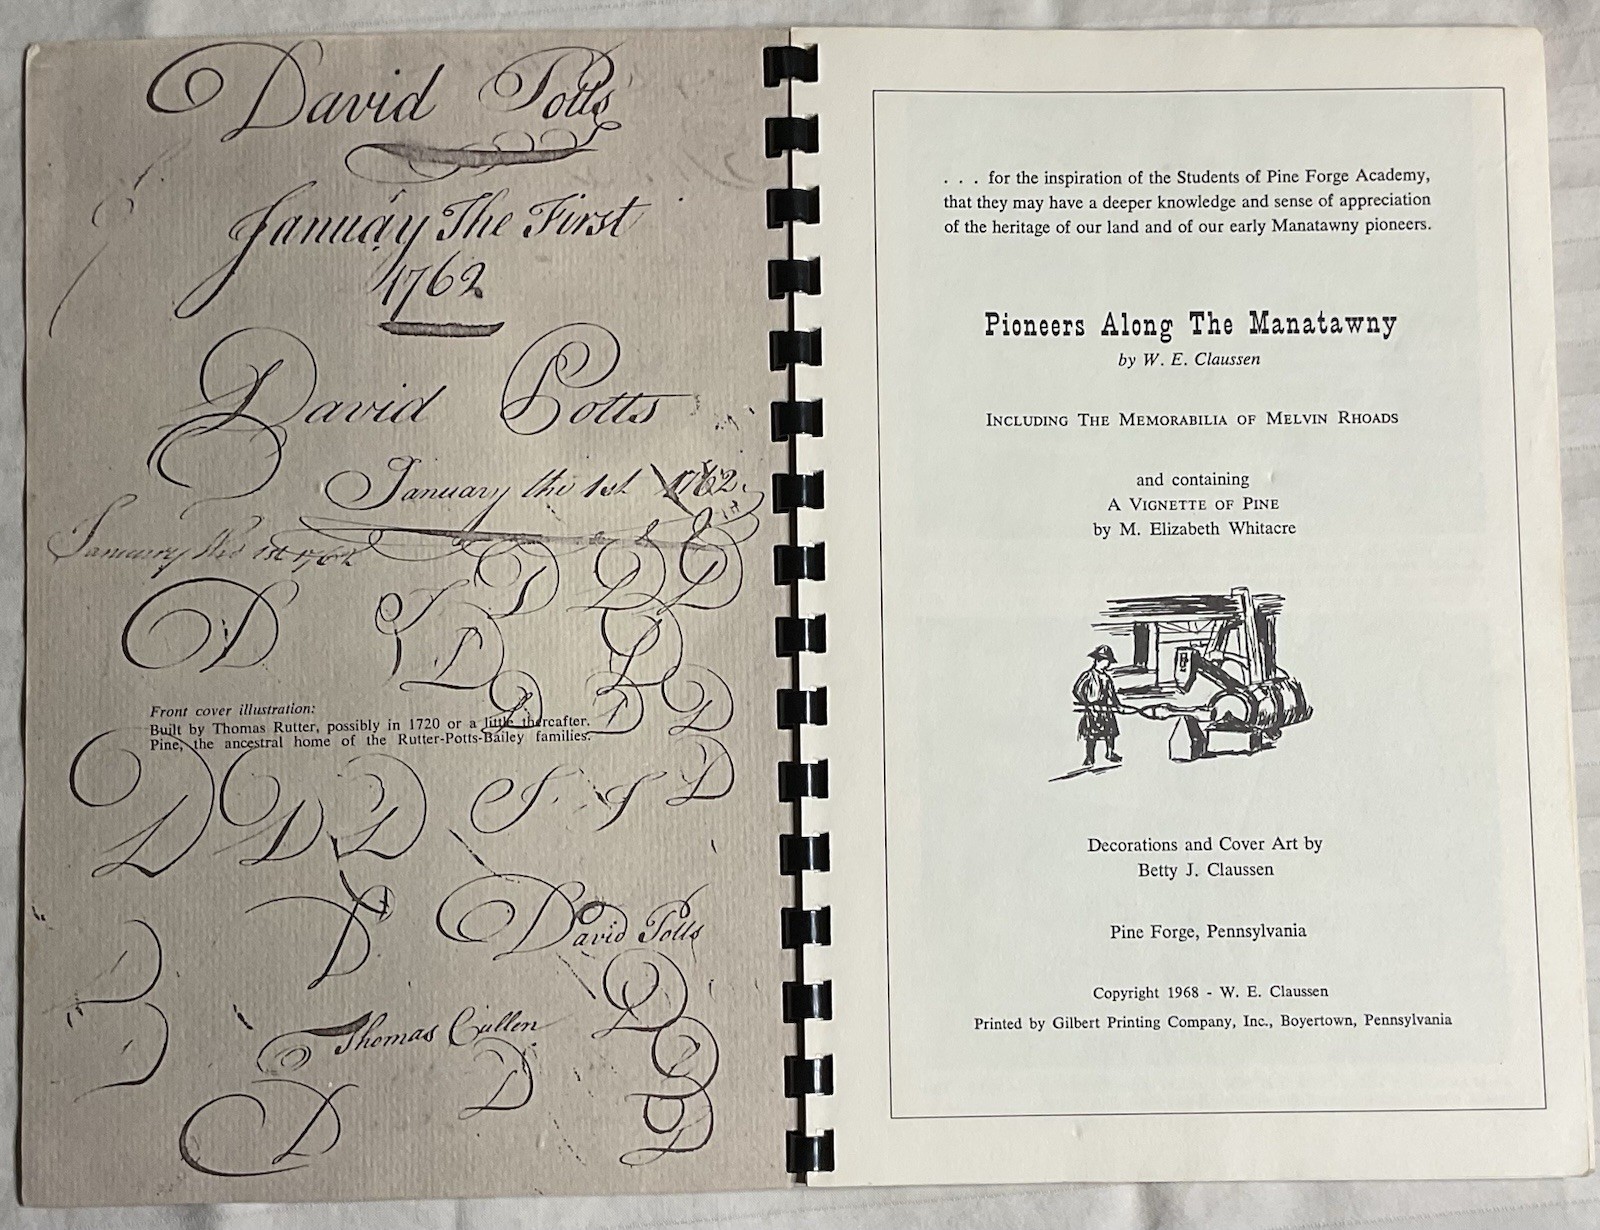 David Potts
Januáy The First
1762
David Potts
January the 1st 1762.
January the 1st 1762
D
D
D
D
D
D
D
D
D
D
Front cover illustration:
Built by Thomas Rutter, possibly in 1720 or a little thereafter.
Pine, the ancestral home of the Rutter-Potts-Bailey families.
D
D
D
D
D
David Potts
D
Thomas Cullen
D
D
D
D
. . . for the inspiration of the Students of Pine Forge Academy,
that they may have a deeper knowledge and sense of appreciation
of the heritage of our land and of our early Manatawny pioneers.
Pioneers Along The Manatawny
by W. E. Claussen
INCLUDING THE MEMORABILIA OF MELVIN RHOADS
and containing
A VIGNETTE OF PINE
by M. Elizabeth Whitacre
Decorations and Cover Art by
Betty J. Claussen
Pine Forge, Pennsylvania
Copyright 1968 - W. E. Claussen
Printed by Gilbert Printing Company, Inc., Boyertown, Pennsylvania